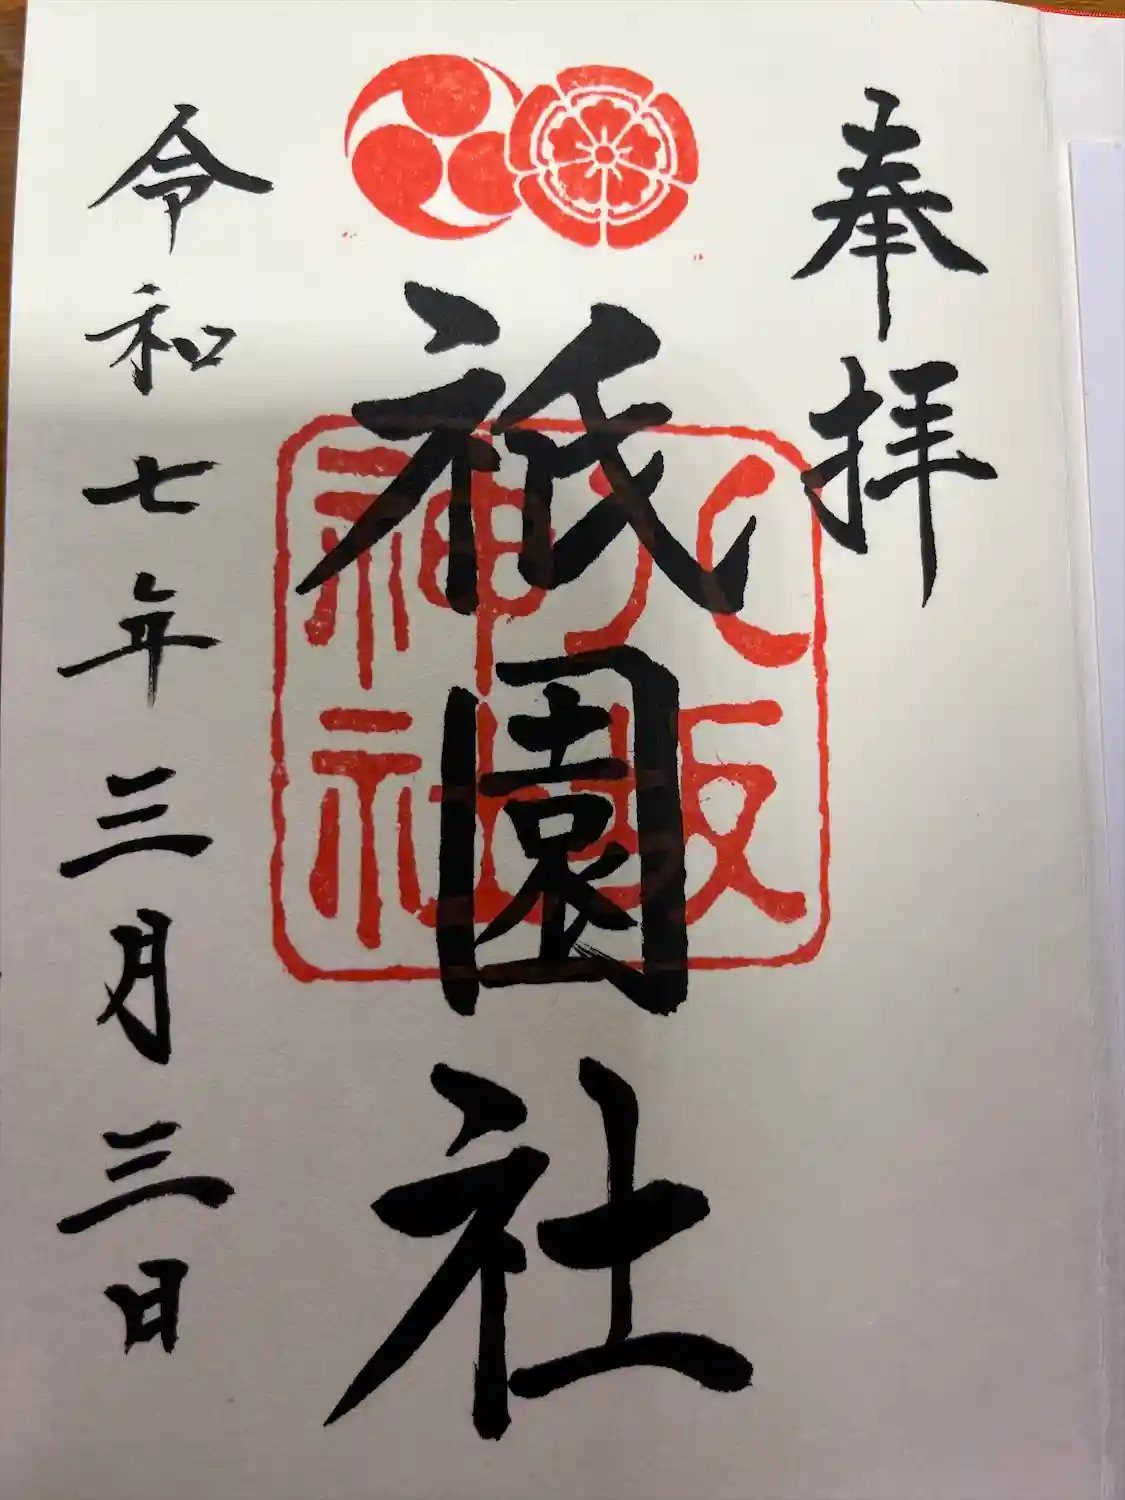 奉拝
祇園社
八坂神社
令和七年三月三日